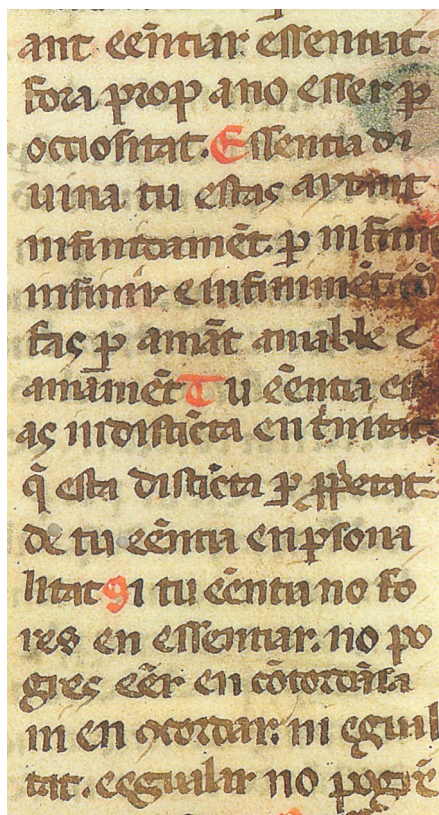 ant eēntiar essentiat.
fora prop a no esser ꝑ
occiositat. Essentia di
uina tu estas aytant
infinidamēt. ꝑ infinit
infinir e infinimēt
fas ꝑ amāt amable e
amamēt Tu eēntia est
as indisticta en t̄nitat
q̄ esta disticta ꝑ ꝓpetat
de tu eēntia en ꝑsona
litat Si tu eēntia no fo
res en essentiar. no po
gres eēr en cōcordāsa
ni en ꝯcordar. ni egual
tat. e egualar no pogrē